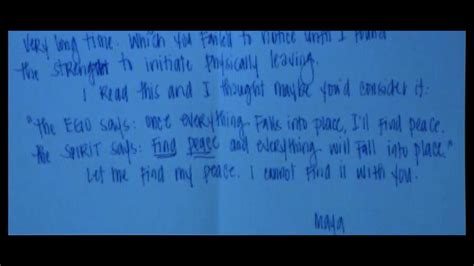 very long time. Which you failed to notice until I found
the strength to initiate physically leaving.
I read this and I thought maybe you'd consider it:
"the EGO says: once everything falls into place, I'll find peace.
the SPIRIT says: Find peace and everything will fall into place."
Let me find my peace. I cannot find it with you.
Maya